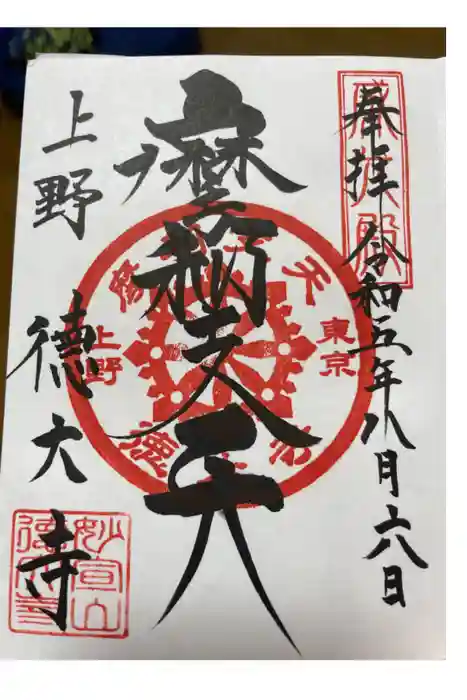 奉拝 令和五年八月六日
摩利支天
上野 徳大寺
東京
上野
天
徳大寺
妙宣山
徳大寺